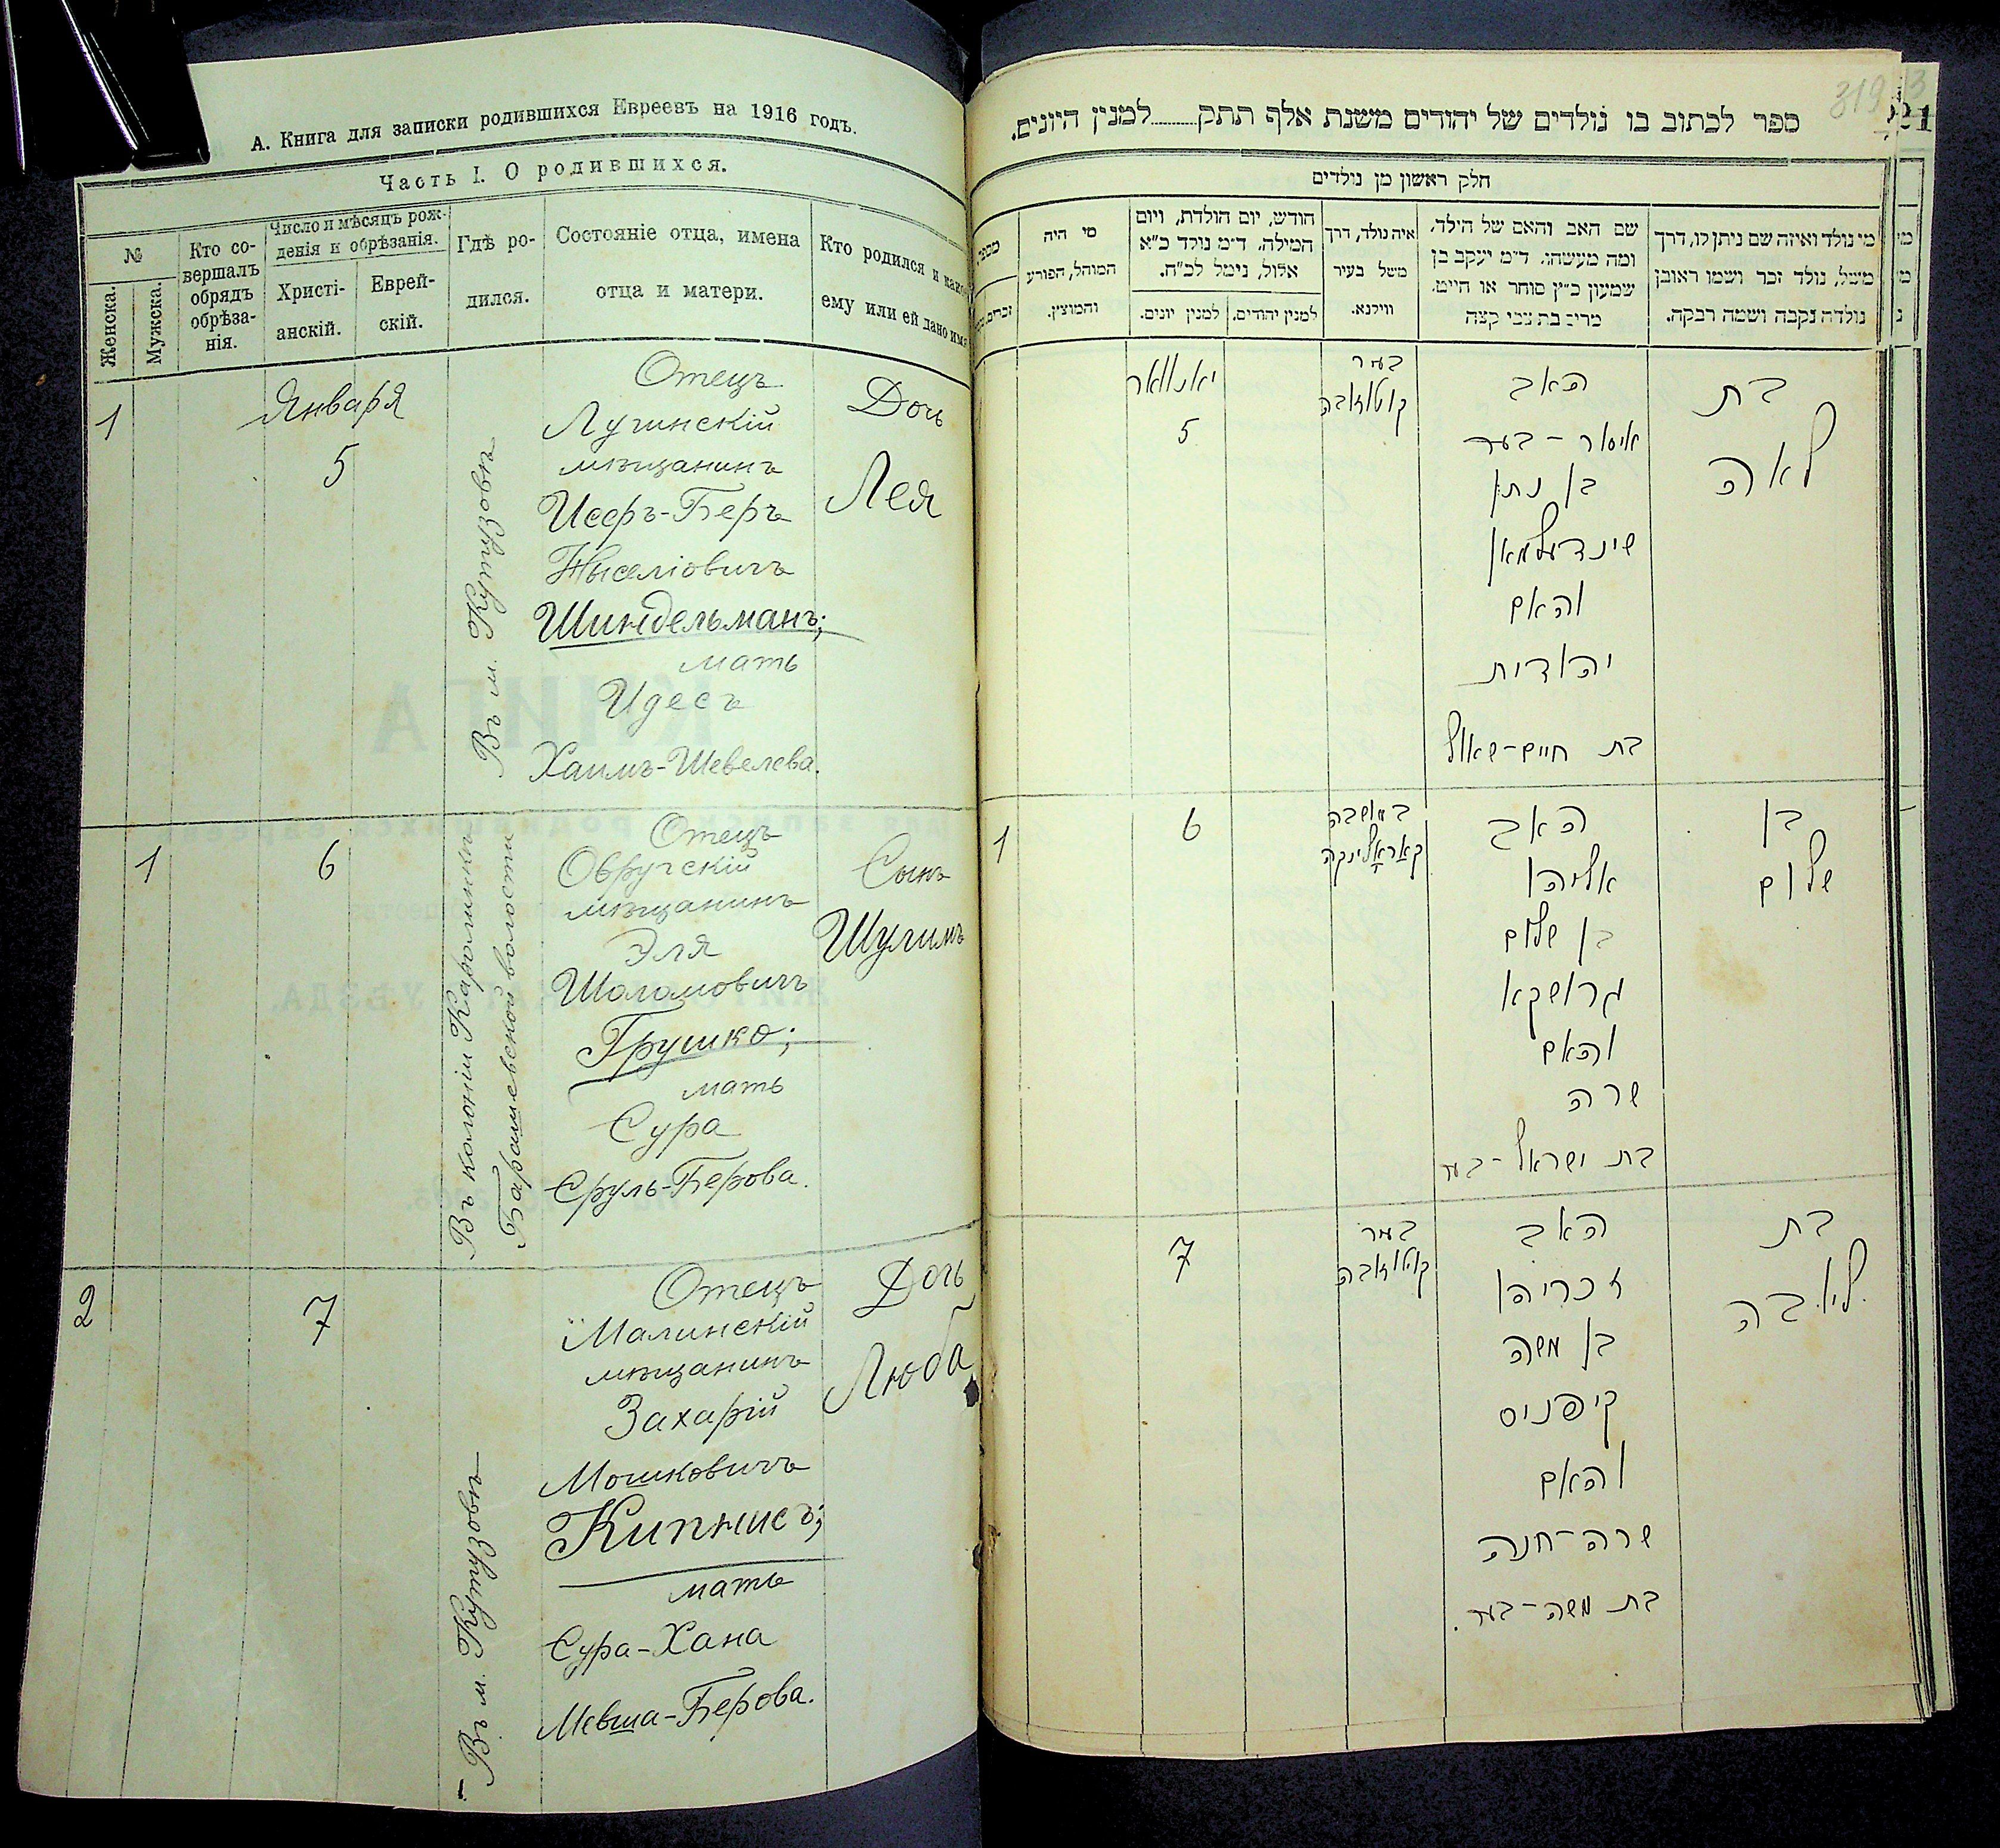 А. Книга для записки родившихся Евреевъ на 1916 годъ.
Часть I. О родившихся.
№
Женска.
Мужска.
Кто со-
вершалъ
обрядъ
обрѣза-
нія.
Число и мѣсяцъ рож-
денія и обрѣзанія.
Христі-
анскій.
Еврей-
скій.
Гдѣ ро-
дился.
Состояніе отца, имена
отца и матери.
Кто родился и какое
ему или ей дано имя
1
Января
5
Въ м. Кутузовѣ
Отецъ
Лугинскій
мѣщанинъ
Исеръ-Беръ
Шиндельманъ;
мать
Идесъ
Хаимъ-Шевелева.
Дочь
Лея
1
6
Въ колоніи Каролинкѣ
Барашевской волости
Отецъ
Овручскій
мѣщанинъ
Эля
Шоломовичъ
Грушко;
мать
Сура
Сруль-Берова.
Сынъ
Шулимъ
2
7
Въ м. Кутузовѣ
Отецъ
Малинскій
мѣщанинъ
Захарій
Мошковичъ
Кипнисъ;
мать
Сура-Хана
Мевша-Берова.
Дочь
Люба
319
ספר לכתוב בו נולדים של יהודים משנת אלף תתק......למנין היונים.
חלק ראשון מן נולדים
מי נולד ואיזה שם ניתן לו, דרך
משל, נולד זכר ושמו ראובן
נולדה נקבה ושמה רבקה.
שם האב והאם של הילד,
ומה מעשהו. ד״מ יעקב בן
שמעון כ״ץ סוחר או חייט.
מרים בת צבי קצה
איה נולד, דרך
משל בעיר
ווילנא.
חודש, יום הולדת, ויום
המילה. ד״מ נולד כ״א
אלול, נימל לכ״ח.
למנין יהודים.
למנין יונים.
מי היה
המוהל, הפורע
והמוצץ.
בת
לאה
האב
איסר-בער
בן נתן
שינדעלמאן
והאם
יהודית
בת חיים-שאול
בעיר
קוטוזובה
יאנוואר
5
בן
שלום
האב
אליהו
בן שלום
גרושקא
והאם
שרה
בת ישראל-בער
במושבה
קאראלינקה
6
1
בת
ליובה
האב
זכריהו
בן משה
קיפניס
והאם
שרה-חנה
בת משה-בער.
בעיר
קוטוזובה
7